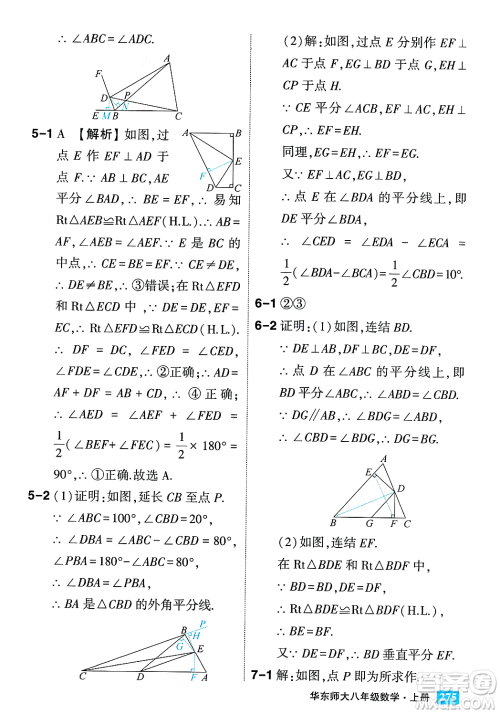 ∴ ∠ABC = ∠ADC.
A
D
P
E M B C
5-1 A 【解析】如图,过
点 E 作 EF ⊥ AD 于
点 F. ∵ AE
平分∠BAD, ∴ BE = EF, ∴ 易知
Rt△AEB≌Rt△AEF(H.L.). ∴ AB =
AF, ∠AEB = ∠AEF. ∵ E 是 BC 的
中点, ∴ CE = BE. ∵ CE≠DE,
∴ DE≠BE, ∴ ③错误;在 Rt△DEF
和 Rt△DEC 中, ∵ DE = DE, EF =
EC, ∴ Rt△DEF≌Rt△DEC(H.L.),
∴ DF = DC, ∠FDE = ∠CDE,
∠FED = ∠CED, ∴ ②正确; ∴ AD =
AF + FD = AB + DC, ∴ ④ 正确;
∴ ∠AED = ∠AEF + ∠FED =
1/2(∠BEF + ∠FEC) = 1/2 × 180° =
90°, ∴ ①正确.故选 A.
A B
F E
D C
5-2 (1)证明:如图,延长 CB 至点 P.
∵ ∠ABC = 100°, ∠CBD = 20°,
∴ ∠PBA = 180° - ∠ABC = 80°,
∠DBA = ∠ABC - ∠CBD = 80°,
∴ ∠DBA = ∠PBA,
∴ BA 是△CBD 的外角平分线.
P
B
H
G
E
C D A
(2)解:如图,过点 E 分别作 EF ⊥
AD 于点 F, EG ⊥ BD 于点 G, EH ⊥
CB 于点 H.
∵ CE 平分∠ACB, EF ⊥ AD, EH ⊥
BC, ∴ EF = EH.
同理, EG = EH, ∴ EF = EG,
∴ 点 E 在∠BDA 的平分线上,即
DE 平分∠BDA,
∴ ∠CED = ∠EDA - ∠ECA =
1/2(∠BDA - ∠BCA) = 1/2∠CBD = 10°.
6-1 ②③
6-2 证明:(1)如图,连结 BD.
∵ DE⊥AB, DF⊥BC, DE = DF,
∴ 点 D 在∠ABC 的平分线上,
∴ ∠ABD = ∠CBD.
∵ DG∥AB, ∴ ∠ABD = ∠GDB,
∴ ∠CBD = ∠GDB, ∴ BG = DG.
A
E
D
B G F C
(2)如图,连结 EF.
在 Rt△BDE 和 Rt△BDF 中,
∵ BD = BD, DE = DF,
∴ Rt△BDE≌Rt△BDF(H.L.),
∴ BE = BF.
又∵ DE = DF, ∴ BD 垂直平分 EF.
7-1 解:如图,点 P 即为所求作.
华东师大八年级数学·上册 275